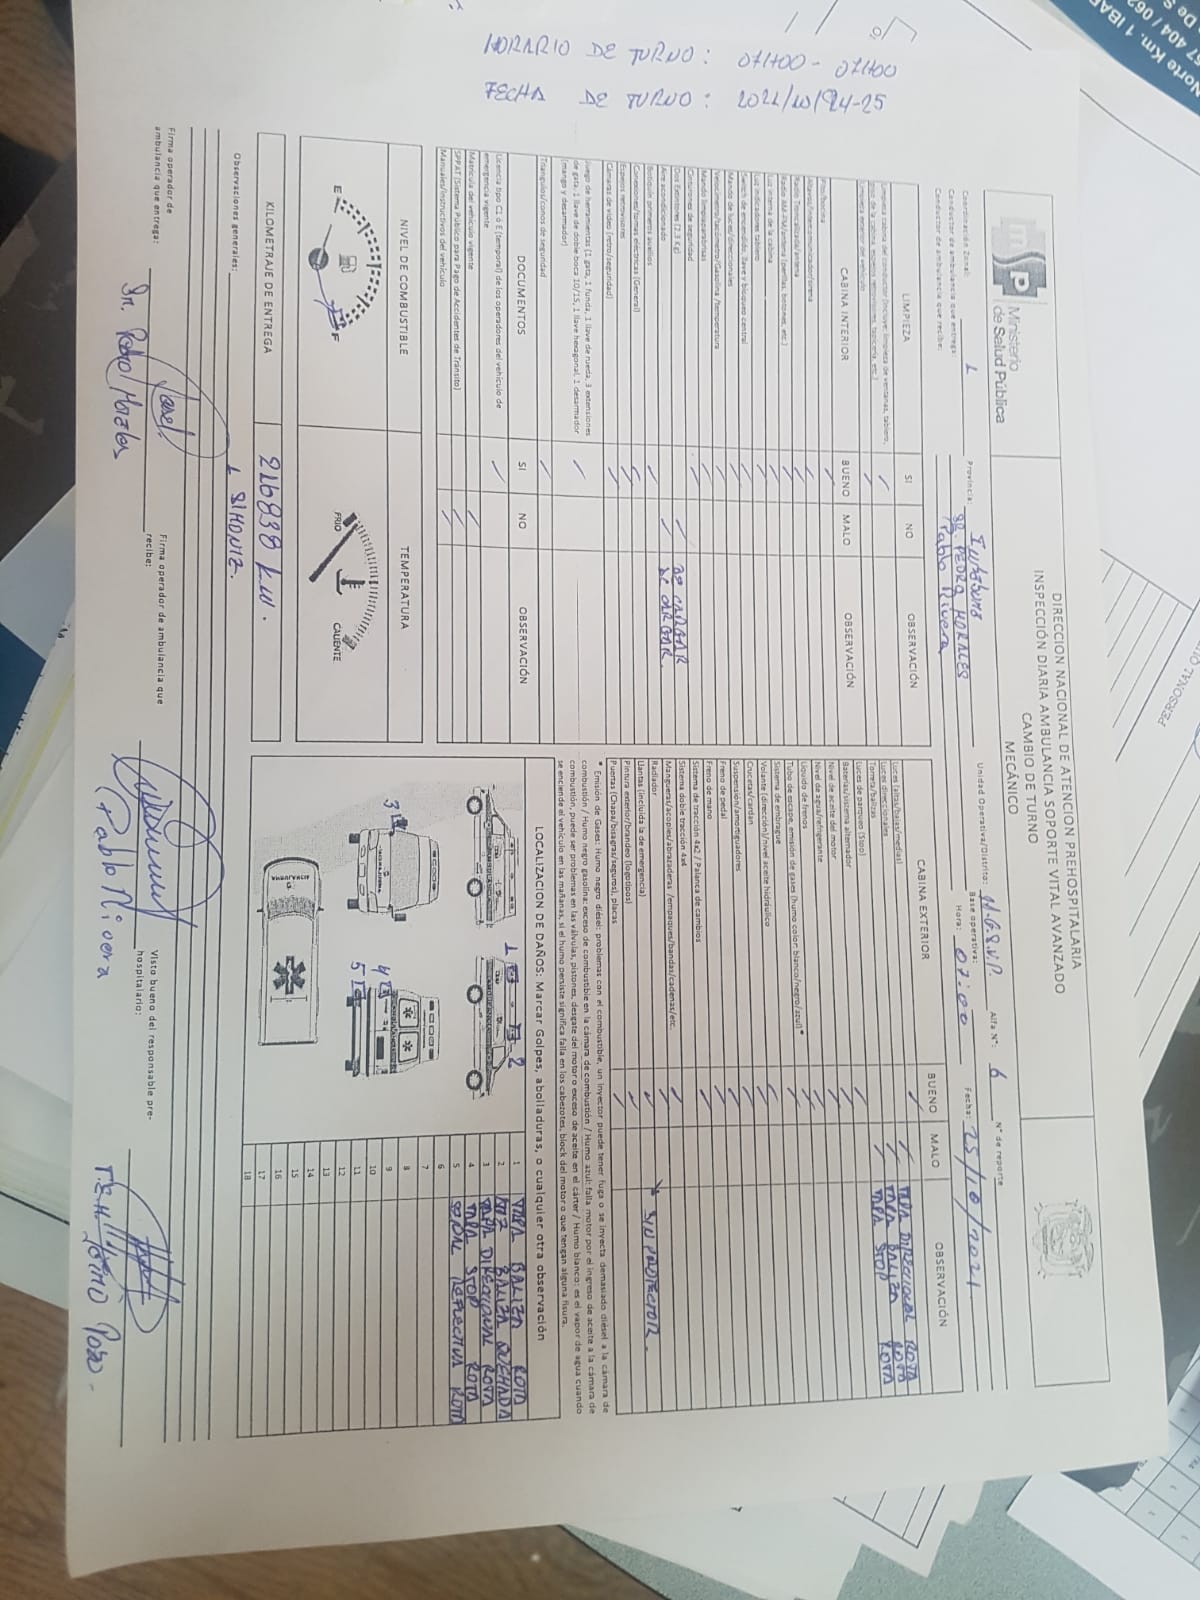 DIRECCION NACIONAL DE ATENCION PREHOSPITALARIA
INSPECCIÓN DIARIA AMBULANCIA SOPORTE VITAL AVANZADO
CAMBIO DE TURNO
MECÁNICO
msp Ministerio
de Salud Pública
Coordinación Zonal: 1 Provincia: Imbabura Unidad Operativa/Distrito: H.G.S.V.P. Alfa N°: 6 N° de reporte
Conductor de ambulancia que entrega: SR. PEDRO MORALES Base operativa:
Conductor de ambulancia que recibe: Pablo Rivera Hora: 07:00 Fecha: 25/10/2021
LIMPIEZA SI NO OBSERVACIÓN
Limpieza cabina del conductor (incluye: limpieza de ventanas, tablero,
piso de la cabina, espejos retrovisores, tapicería, etc.)
Limpieza exterior del vehículo
CABINA INTERIOR BUENO MALO OBSERVACIÓN
Pito/bocina
Altavos/intercomunicador/sirena
Radio Troncalizada/antena
Radio AM-FM/antena (perillas, botones, etc.)
Luz interna de la cabina
Luz indicadores tablero
Switch de encendido, llave y bloqueo central
Mando de luces/direccionales
Velocímetro/tacómetro/Gasolina /temperatura
Mando limpiaparabrisas
Cinturones de seguridad
Dos Extintores (2,3 Kg) DE CARGAR
Aire acondicionado DE CARGAR
Botiquín primeros auxilios
Conexiones/tomas eléctricas (General)
Espejos retrovisores
Cámaras de video (retro/seguridad)
Juego de herramientas (1 gata, 1 funda, 1 llave de rueda, 3 extensiones
de gata, 1 llave de doble boca 10/15, 1 llave hexagonal, 1 desarmador
(mango y desarmador)
Triangulos/conos de seguridad
DOCUMENTOS SI NO OBSERVACIÓN
Licencia tipo C1 ó E (temporal) de los operadores del vehículo de
emergencia vigente
Matricula del vehículo vigente
SPPAT (Sistema Público para Pago de Accidentes de Tránsito)
Manuales/instructivos del vehículo
NIVEL DE COMBUSTIBLE TEMPERATURA
E F
FRIO CALIENTE
KILOMETRAJE DE ENTREGA 216838 KM.
CABINA EXTERIOR BUENO MALO OBSERVACIÓN
Luces (altas/bajas/medias)
Luces direccionales TAPA DIRECCIONAL ROTA
Torreta/balizas TAPA BALIZA ROTA
Luces de parqueo (Stop) TAPA STOP ROTA
Baterías/sistema alternador
Nivel de aceite del motor
Nivel de agua/refrigerante
Líquido de frenos
Tubo de escape, emisión de gases (humo color: blanco/negro/azul)*
Sistema de embrague
Volante (dirección)/nivel aceite hidráulico
Crucetas/cardan
Suspensión/amortiguadores
Freno de pedal
Freno de mano
Sistema de tracción 4x2 / Palanca de cambios
Sistema doble tracción 4x4
Mangueras/acoples/abrazaderas /empaques/bandas/cadenas/etc.
Radiador
Llantas (incluida la de emergencia) SIN PROTECTOR.
Pintura exterior/brandeo (logotipos)
Puertas (Chapa/bisagras/seguros), placas
* Emisión de Gases: Humo negro diésel: problemas con el combustible, un inyector puede tener fuga o se inyecta demasiado diésel a la cámara de
combustión / Humo negro gasolina: exceso de combustible en la cámara de combustión / Humo azul: falla motor por el ingreso de aceite a la cámara de
combustión, puede ser problemas en las válvulas, pistones, desgate del motor o exceso de aceite en el cárter / Humo blanco: es el vapor de agua cuando
se enciende el vehículo en las mañanas, si el humo persiste significa falla en los cabezotes, block del motor o que tengan alguna fisura.
LOCALIZACION DE DAÑOS: Marcar Golpes, abolladuras, o cualquier otra observación
1 TAPA BALIZA ROTA
2 LUZ BALIZA QUEMADA
3 TAPA DIRECCIONAL ROTA
4 TAPA STOP ROTA
5 SEÑAL REFLECTIVA ROTA
6
7
8
9
10
11
12
13
14
15
16
17
18
1 2
3
4
5
Observaciones generales: 1 SIMONIZ.
Firma operador de
ambulancia que entrega:
Sr. Pedro Morales
Firma operador de ambulancia que
recibe:
Pablo Rivera
Visto bueno del responsable pre-
hospitalario:
T.E.M. Pozo
HORARIO DE TURNO: 07H00 - 07H00
FECHA DE TURNO: 2021/10/24-25
PERSONAL QU
Norte Km. 1 IBAR